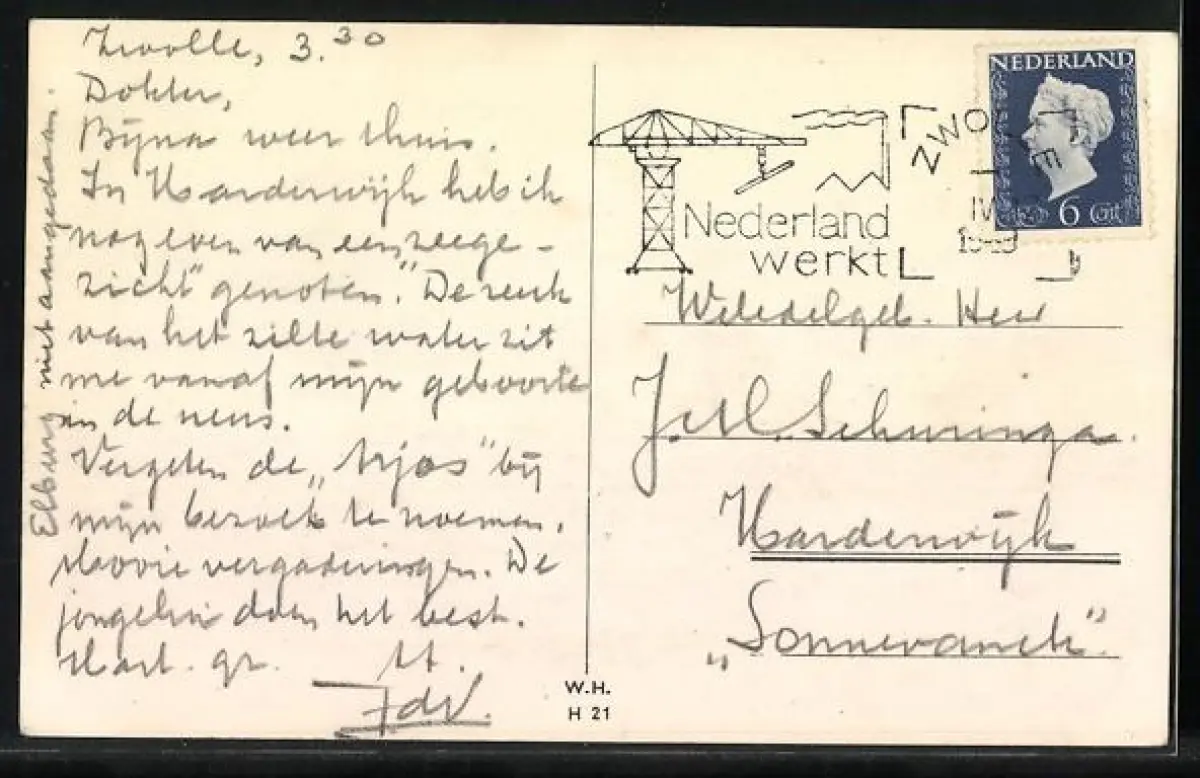 Zwolle, 3.30
Dokter,
Bijna weer thuis.
In Harderwijk heb ik
nog even van een „zeege-
zicht" genoten. De reuk
van het zilte water zit
me vanaf mijn geboorte
in de neus.
Vergeten de „Arjos" bij
mijn bezoek te noemen.
Mooie vergaderingen. De
jongelui doen het best.
Hart. gr. tt.
JdV.
Elburg niet aangedaan.
W.H.
H 21
NEDERLAND
6 Cent
ZWOLLE
IV
Nederland
werkt
Weledelgeb. Heer
J.M. Schuringa.
Harderwijk
„Sonnevanck".